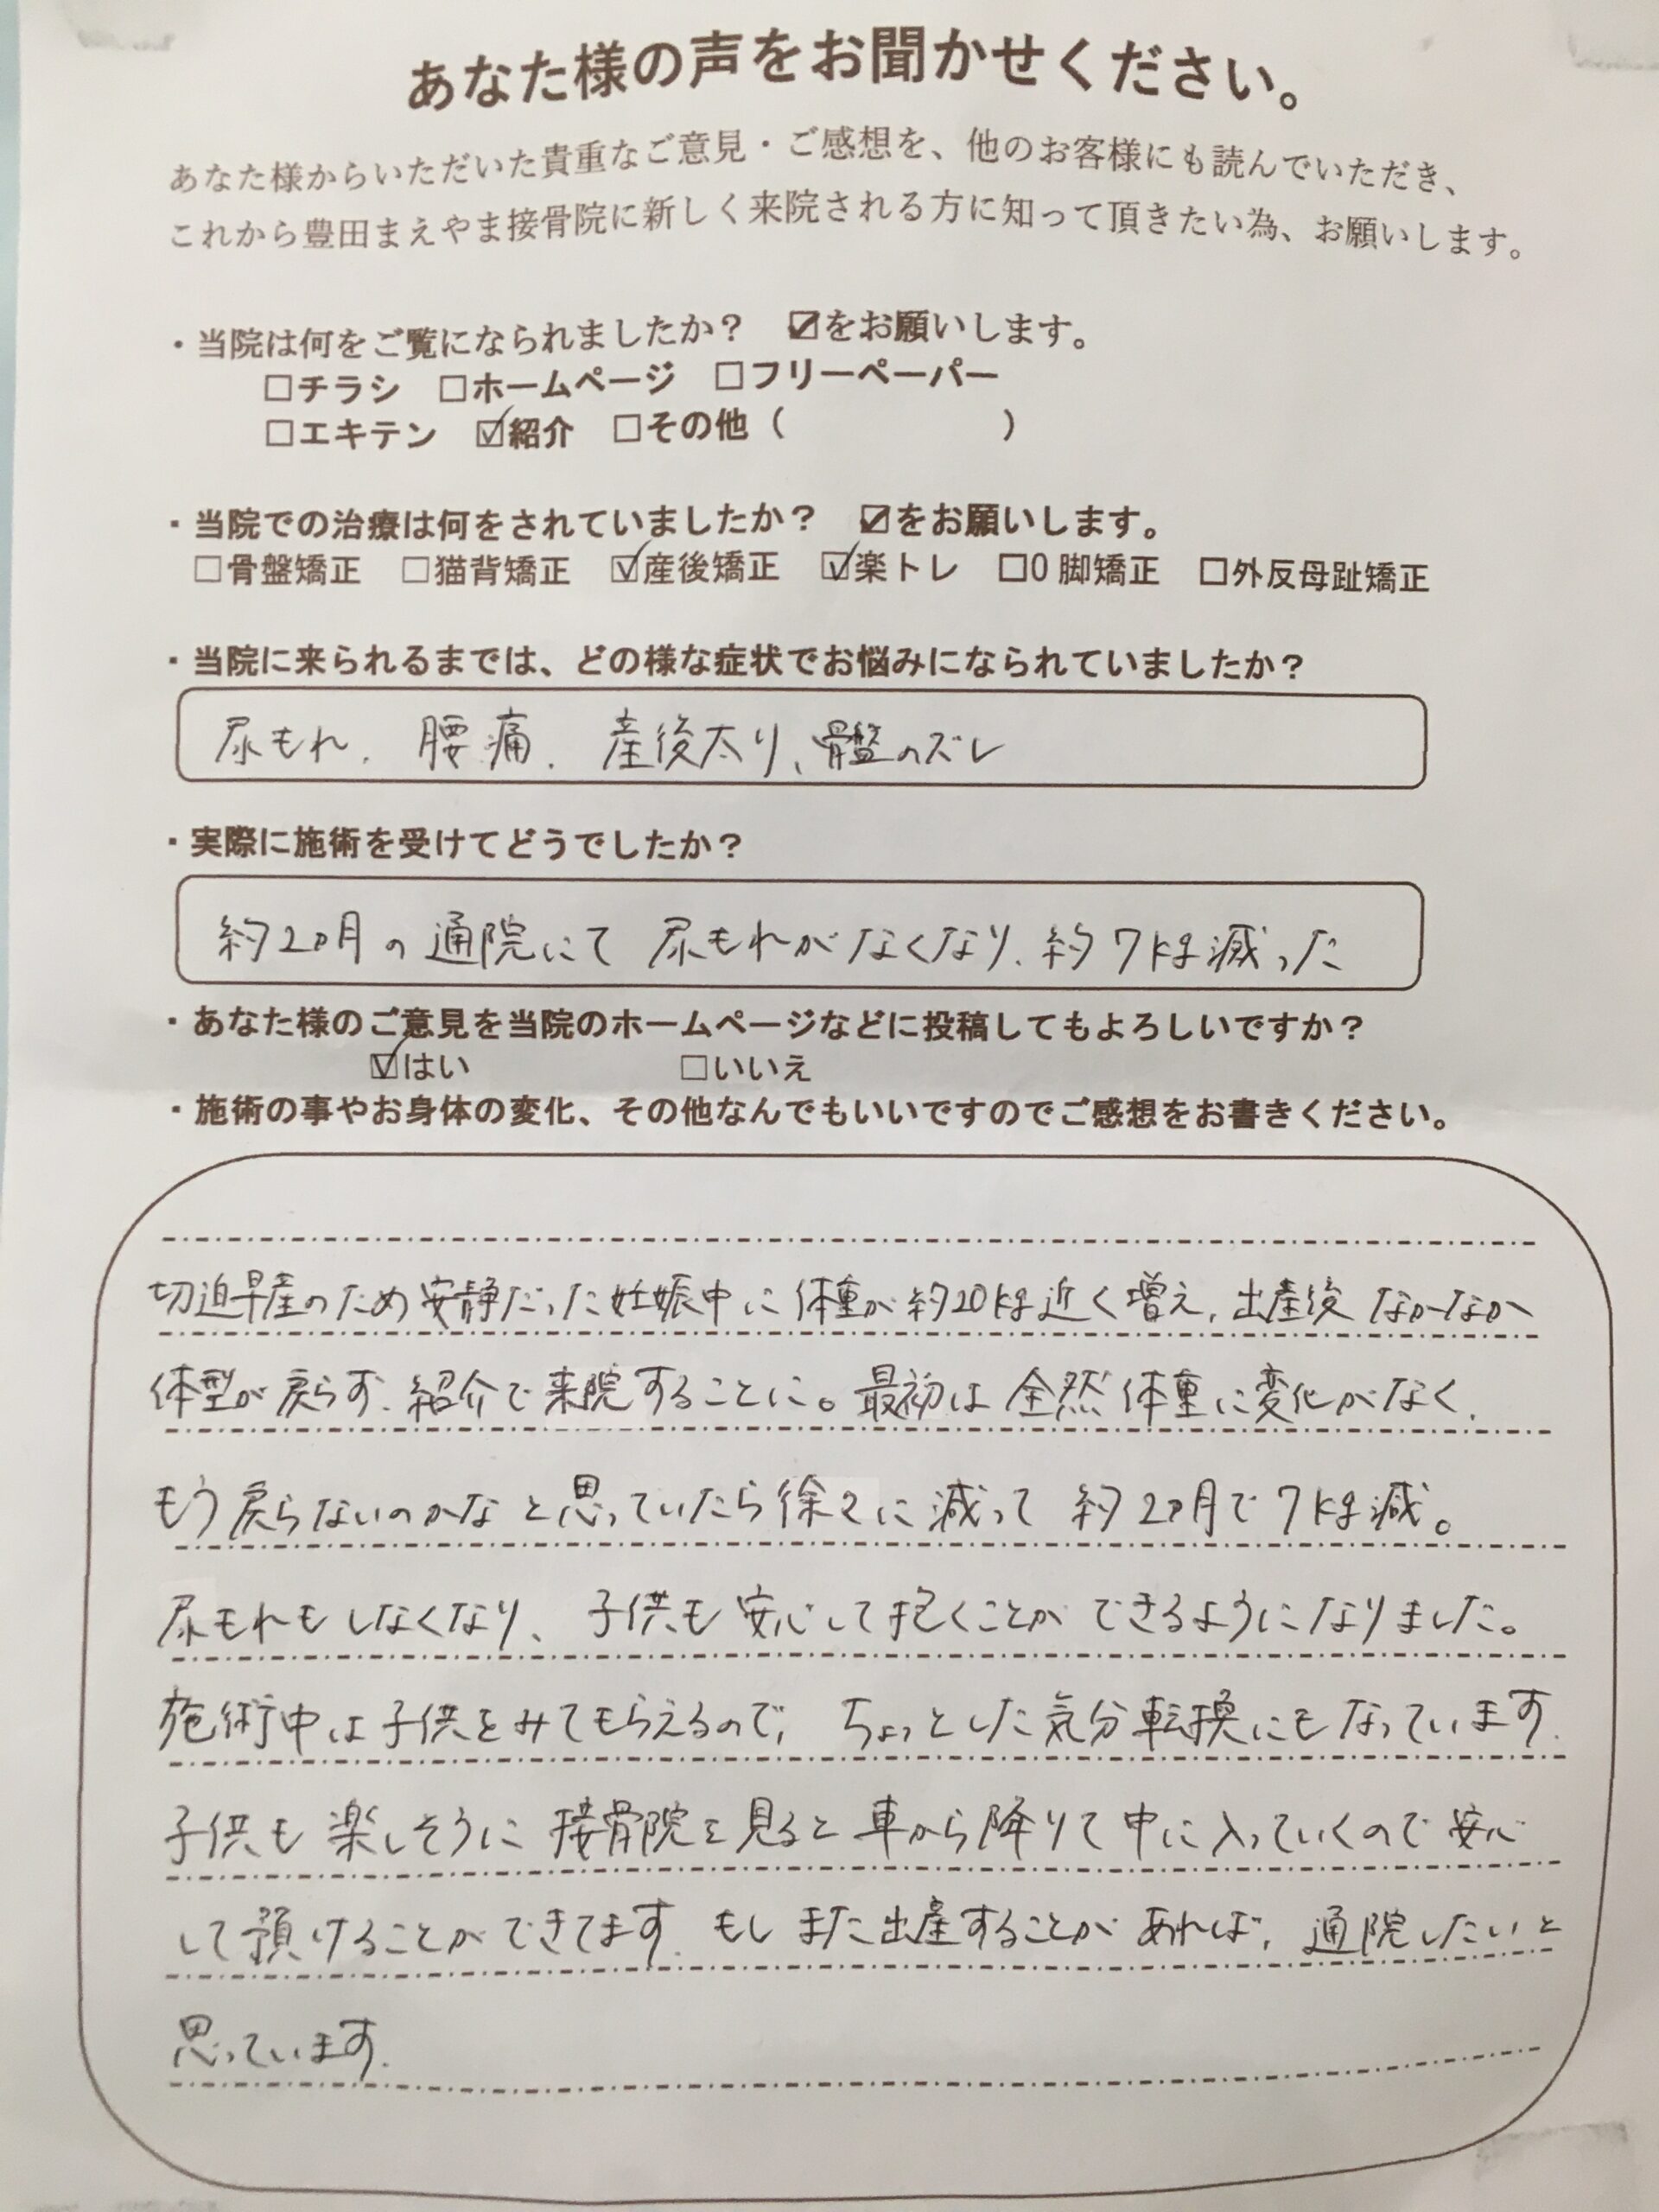 あなた様の声をお聞かせください。
あなた様からいただいた貴重なご意見・ご感想を、他のお客様にも読んでいただき、
これから豊田まえやま接骨院に新しく来院される方に知って頂きたい為、お願いします。
・当院は何をご覧になられましたか？ ☑をお願いします。
□チラシ □ホームページ □フリーペーパー
□エキテン ☑紹介 □その他（ ）
・当院での治療は何をされていましたか？ ☑をお願いします。
□骨盤矯正 □猫背矯正 ☑産後矯正 ☑楽トレ □O脚矯正 □外反母趾矯正
・当院に来られるまでは、どの様な症状でお悩みになられていましたか？
尿もれ、腰痛、産後太り、骨盤のズレ
・実際に施術を受けてどうでしたか？
約2ヶ月の通院にて尿もれがなくなり、約7kg減った
・あなた様のご意見を当院のホームページなどに投稿してもよろしいですか？
☑はい □いいえ
・施術の事やお身体の変化、その他なんでもいいですのでご感想をお書きください。
切迫早産のため安静だった妊娠中に体重が約20kg近く増え、出産後なかなか
体型が戻らず、紹介で来院することに。最初は全然体重に変化がなく、
もう戻らないのかなと思っていたら徐々に減って約2ヶ月で7kg減。
尿もれもしなくなり、子供も安心して抱くことができるようになりました。
施術中は子供をみてもらえるので、ちょっとした気分転換にもなっています。
子供も楽しそうに接骨院を見ると車から降りて中に入っていくので安心
して預けることができてます。もしまた出産することがあれば、通院したいと
思っています。